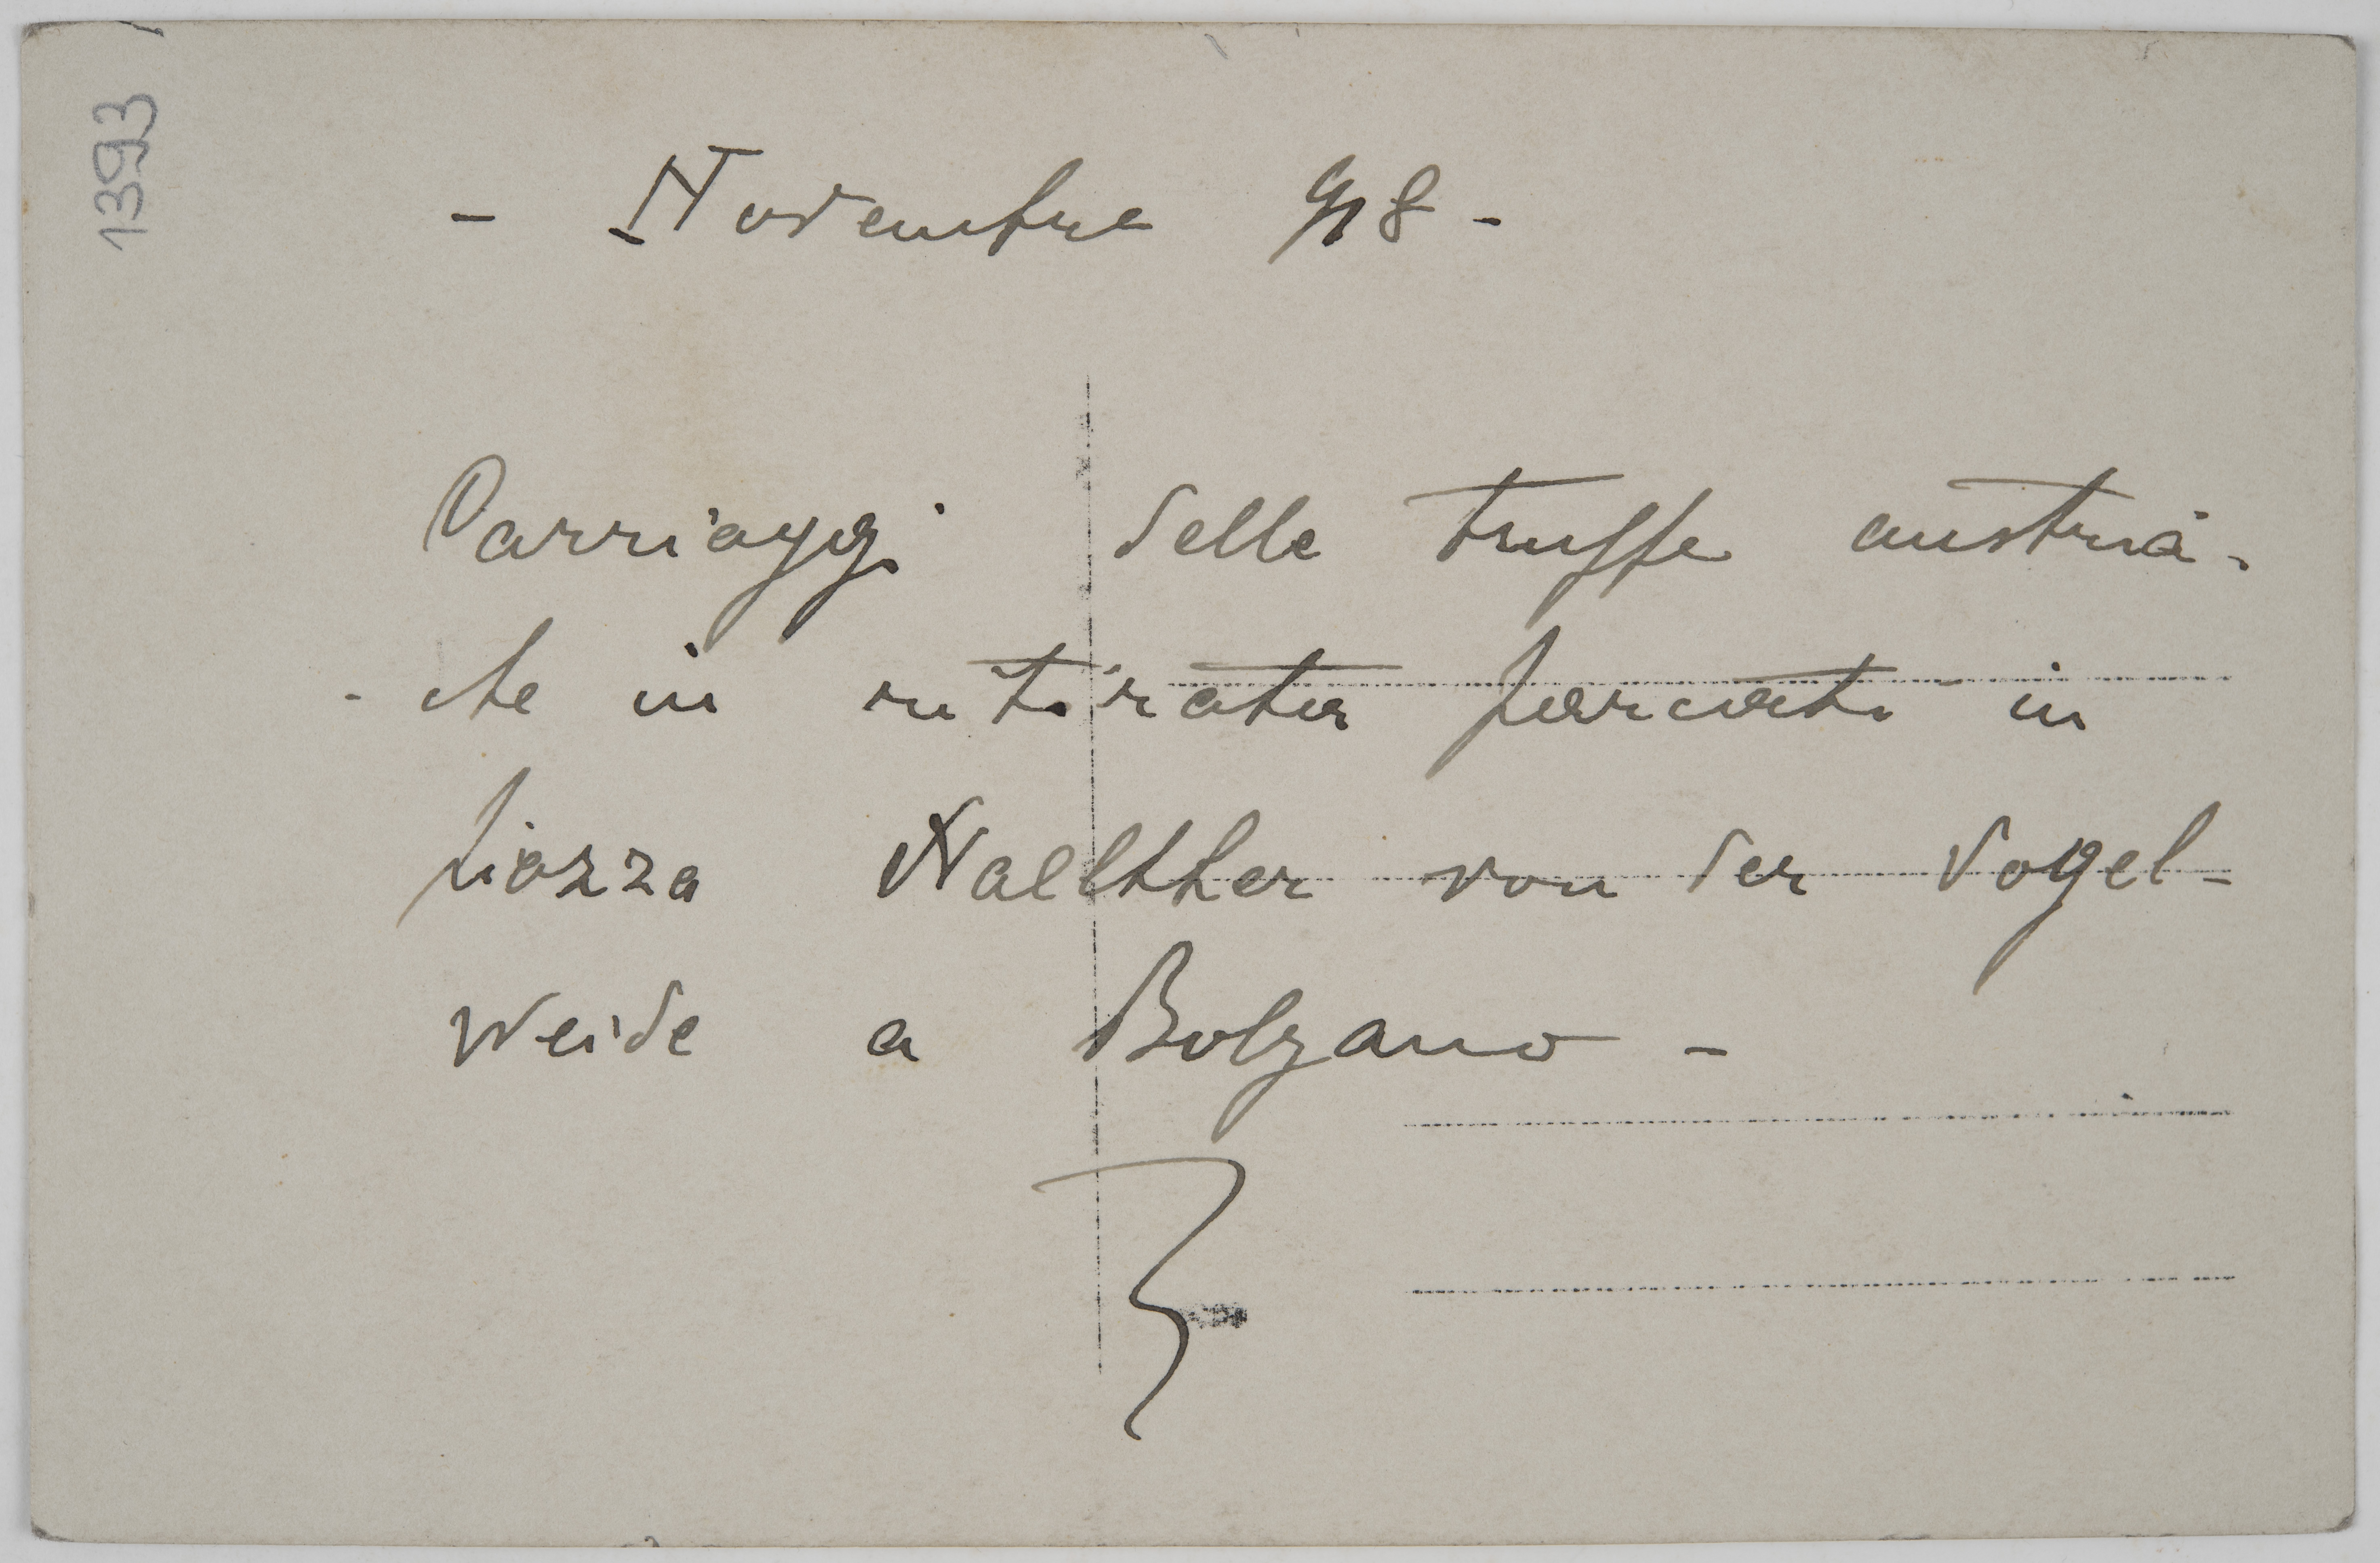 1393
- Novembre 918 -
Carriaggi delle truppe austria-
- che in ritirata parcati in
piazza Wallther von der Vogel-
weide a Bolzano -